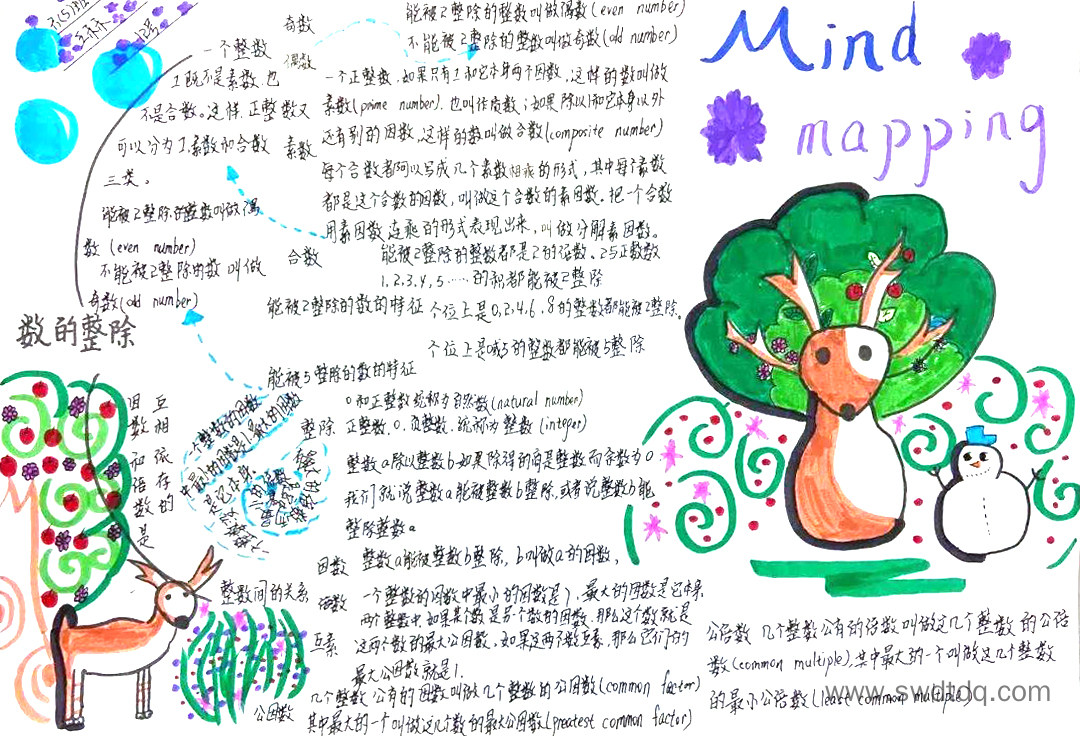 Mind
mapping
一个整数
奇数
偶数
能被2整除的整数叫做偶数(even number)
不能被2整除的整数叫做奇数(old number)
1既不是素数,也
不是合数。这样,正整数又
可以分为1.素数和合数
三类。
素数
一个正整数,如果只有1和它本身两个因数,这样的数叫做
素数(prime number).也叫作质数;如果除以1和它本身以外
还有别的因数,这样的数叫做合数(composite number)
每个合数都可以写成几个素数相乘的形式,其中每个素数
都是这个合数的因数,叫做这个合数的素因数.把一个合数
用素因数连乘的形式表现出来,叫做分解素因数。
能被2整除的整数叫做偶
数(even number)
不能被2整除的数叫做
奇数(old number)
合数
能被2整除的整数都是2的倍数。2与正数数
1,2,3,4,5……的积都能被2整除
能被2整除的数的特征
个位上是0,2,4,6,8的整数都能被2整除。
数的整除
个位上是0或5的整数都能被5整除
能被5整除的数的特征
0和正整数统称为自然数(natural number)
整除
正整数.0.负整数.统称为整数(integer)
整数a除以整数b如果除得的商是整数而余数为0
我们就说整数a能被整数b整除,或者说整数b能
整除整数a
因数
整数a能被整数b整除,b叫做a的因数,
整数间的关系
倍数
一个整数的因数中最小的因数是1,最大的因数是它本身.
两个整数中如果某个数是另个数的因数.那么这个数就是
互素
这两个数的最大公因数.如果这两个数互素,那么它们的
最大公因数就是1.
几个整数公有的因数叫做几个整数的公因数(common factor)
公因数
其中最大的一个叫做这几个数的最大公因数(preatest common factor)
公倍数
几个整数公有的倍数叫做这几个整数的公倍
数(common multiple),其中最大的一个叫做这几个整数
的最小公倍数(least common multiple)
www.swdtdq.com